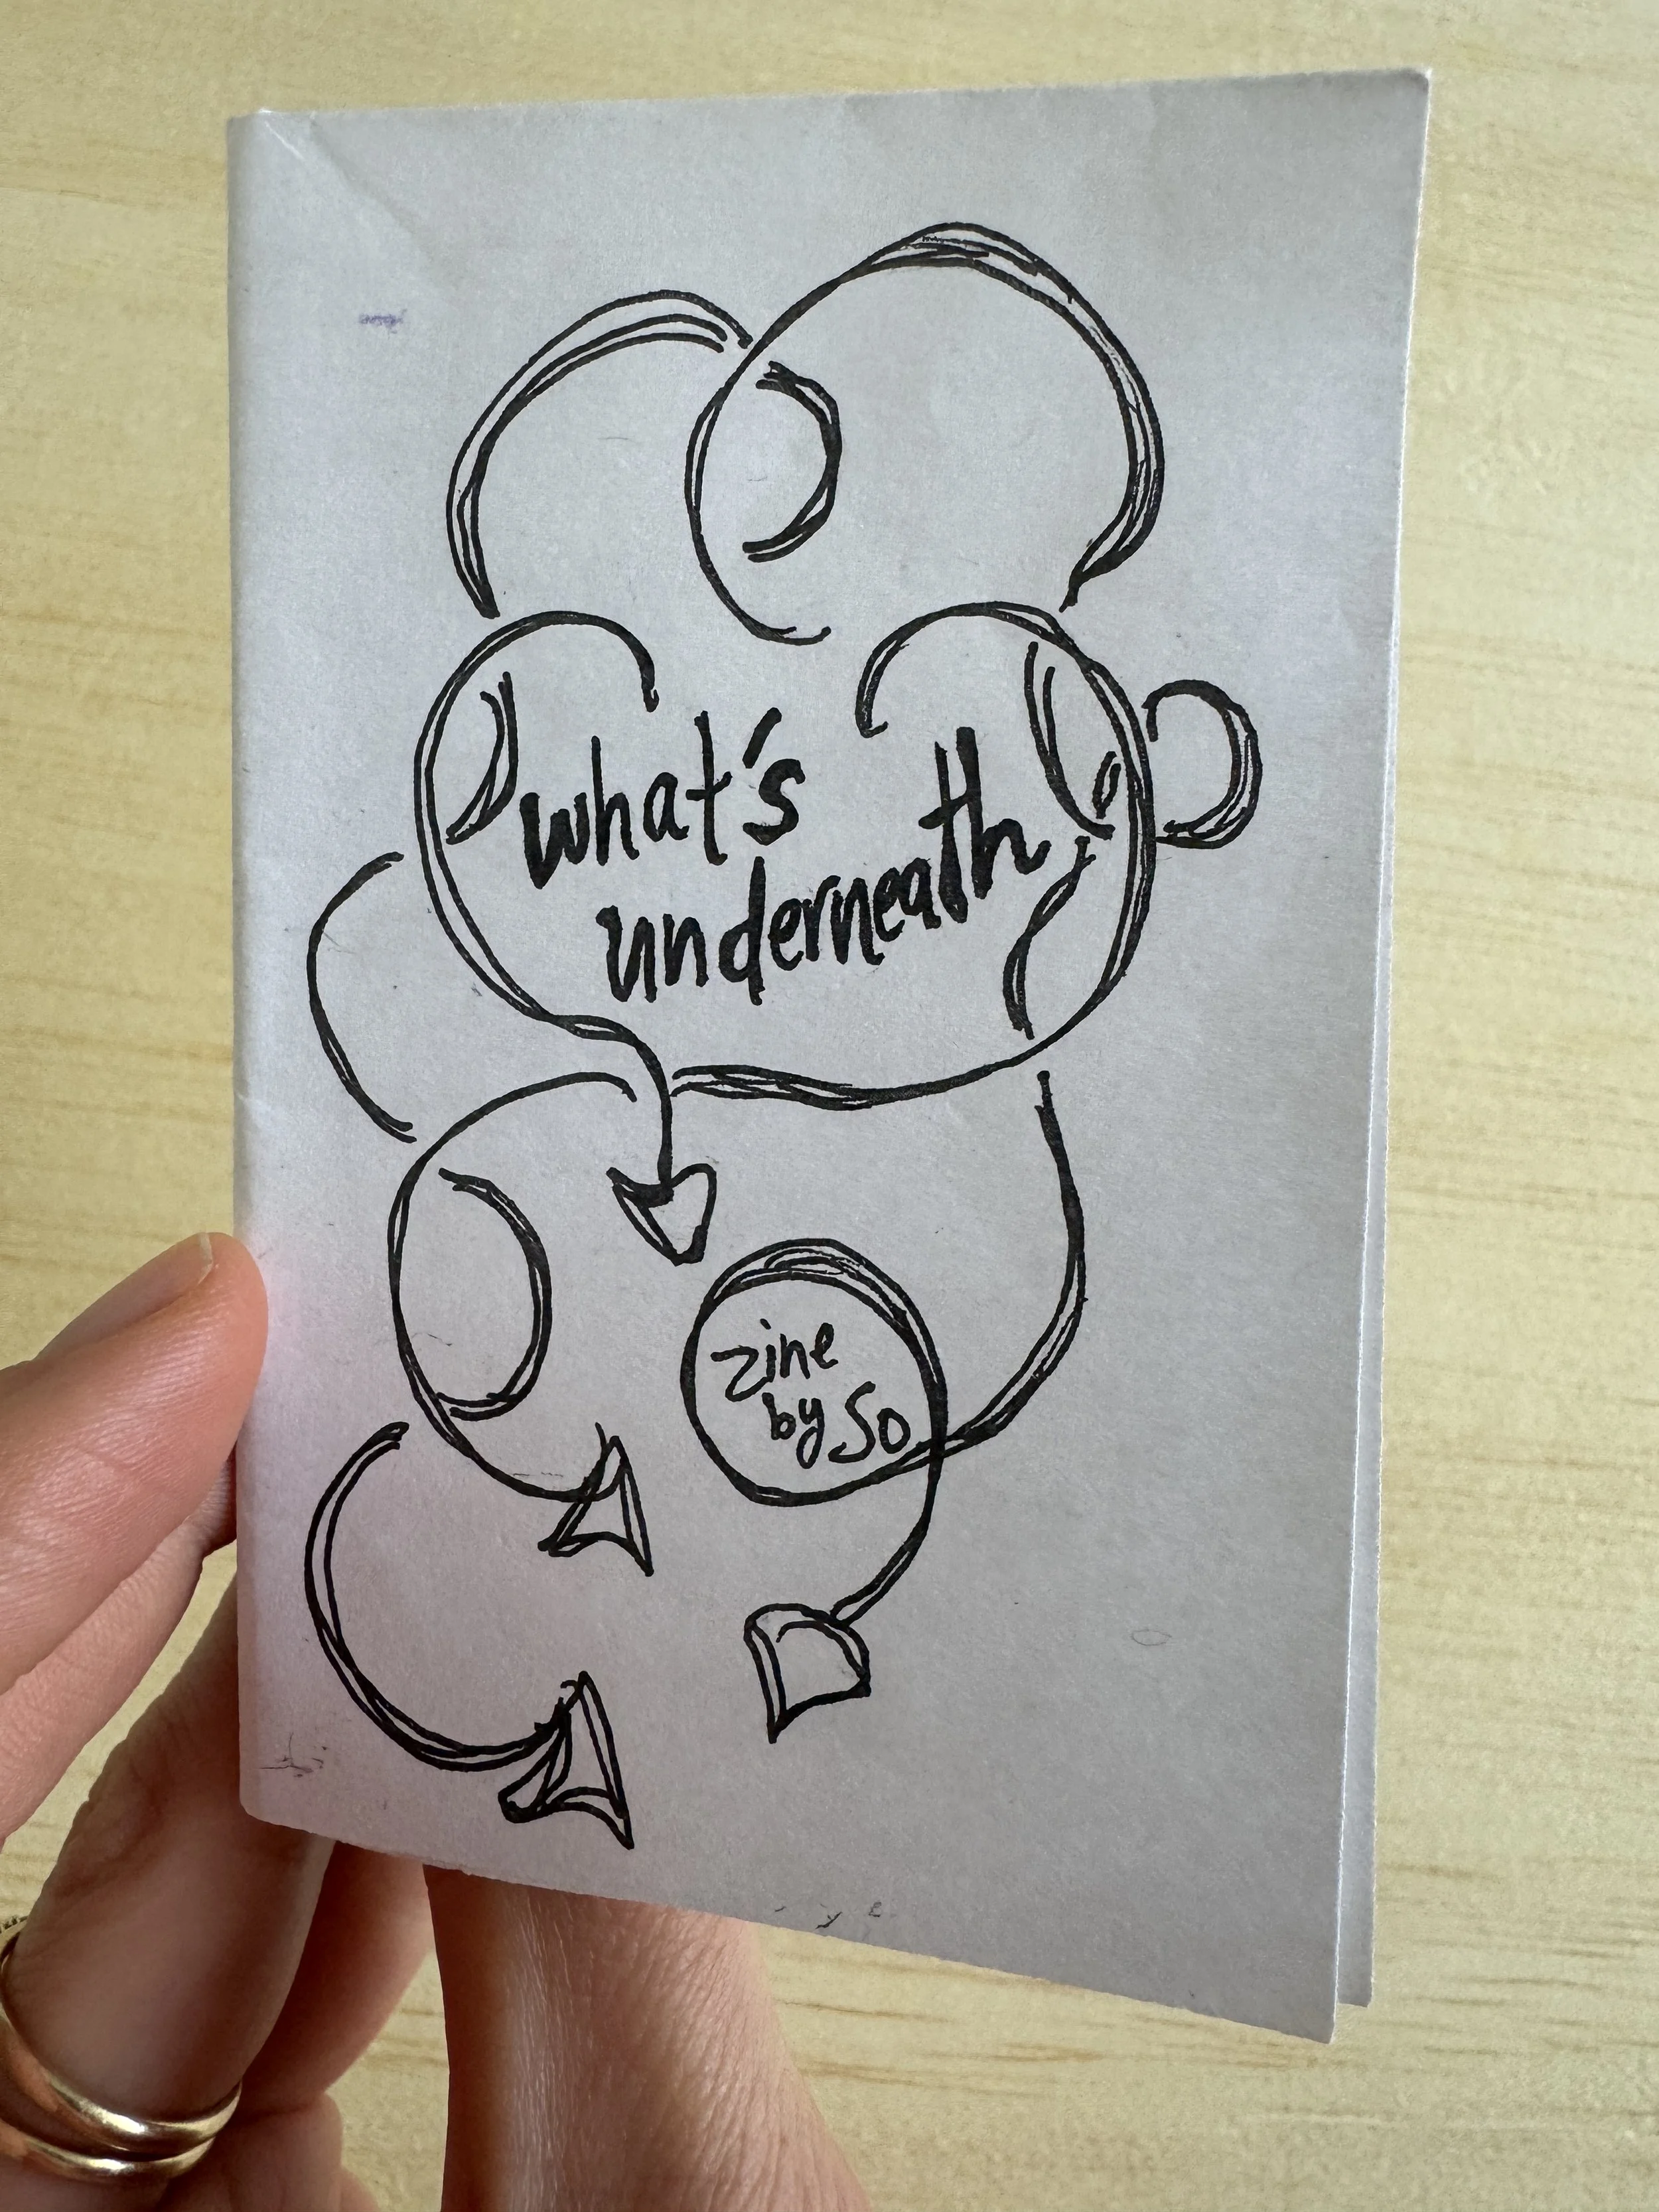 what's
underneath
zine
by So